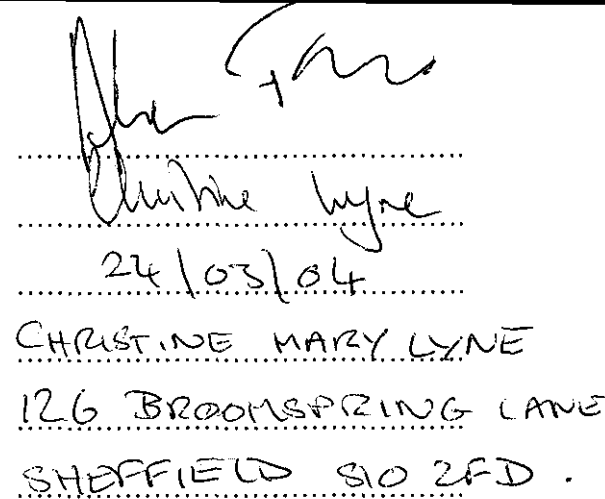 Christine Lyne
24/03/04
CHRISTINE MARY LYNE
126 BROOMSPRING LANE
SHEFFIELD S10 2FD.